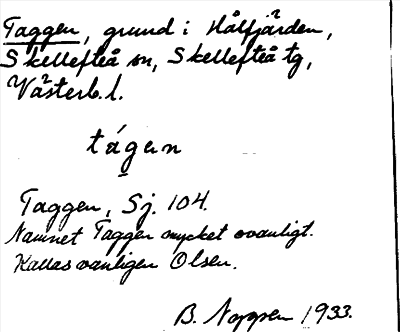 Taggen, grund i Hålfjärden,
Skellefteå sn, Skellefteå tg,
Västerb. l.
tágen
Taggen, Sj. 104.
Namnet Taggen mycket ovanligt.
Kallas vanligen Olsen.
B. 1933.